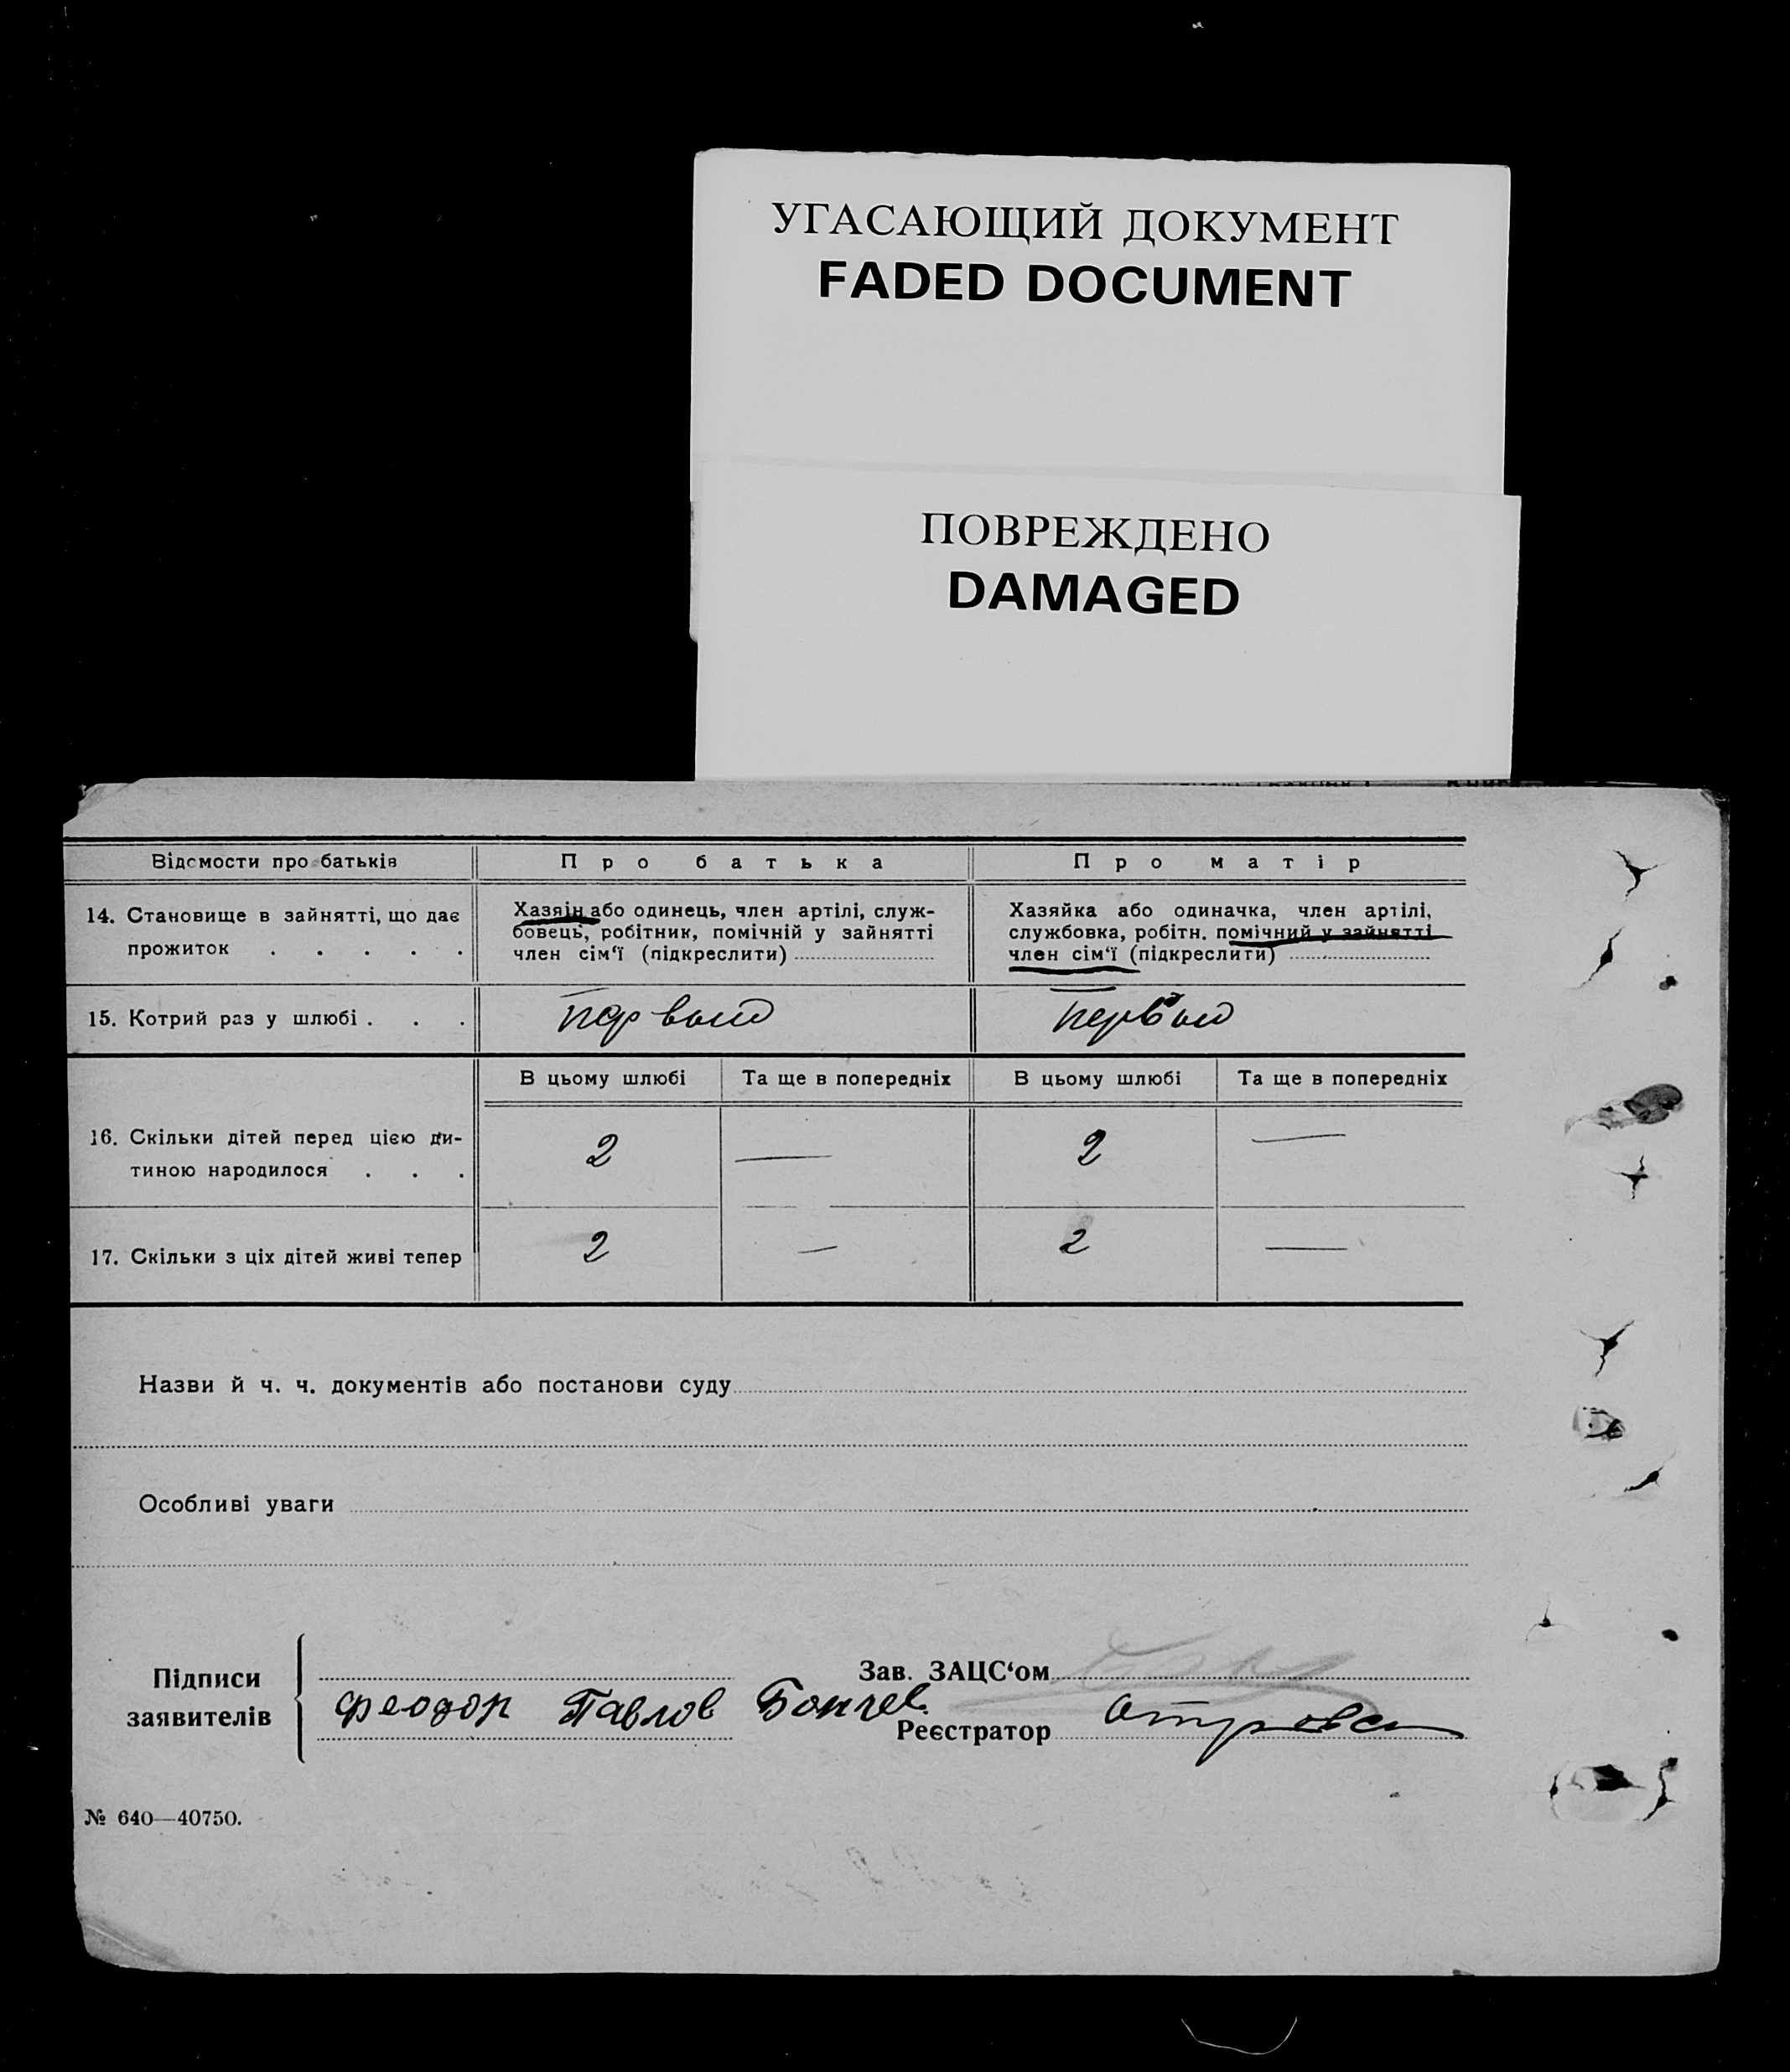 УГАСАЮЩИЙ ДОКУМЕНТ
FADED DOCUMENT
ПОВРЕЖДЕНО
DAMAGED
Відомости про батьків
Про батька
Про матір
14. Становище в зайнятті, що дає
прожиток . . . . .
Хазяїн або одинець, член артілі, служ-
бовець, робітник, помічній у зайнятті
член сім'ї (підкреслити)
Хазяйка або одиначка, член артілі,
службовка, робітн. помічний у зайнятті
член сім'ї (підкреслити)
15. Котрий раз у шлюбі . . .
первый
первый
В цьому шлюбі
Та ще в попередніх
В цьому шлюбі
Та ще в попередніх
16. Скільки дітей перед цією ди-
тиною народилося . . .
2 — 2 —
17. Скільки з ціх дітей живі тепер
2 — 2 —
Назви й ч. ч. документів або постанови суду
Особливі уваги
Підписи
заявителів
Феодор Павлов
Зав. ЗАЦС'ом
Реєстратор
№ 640—40750.